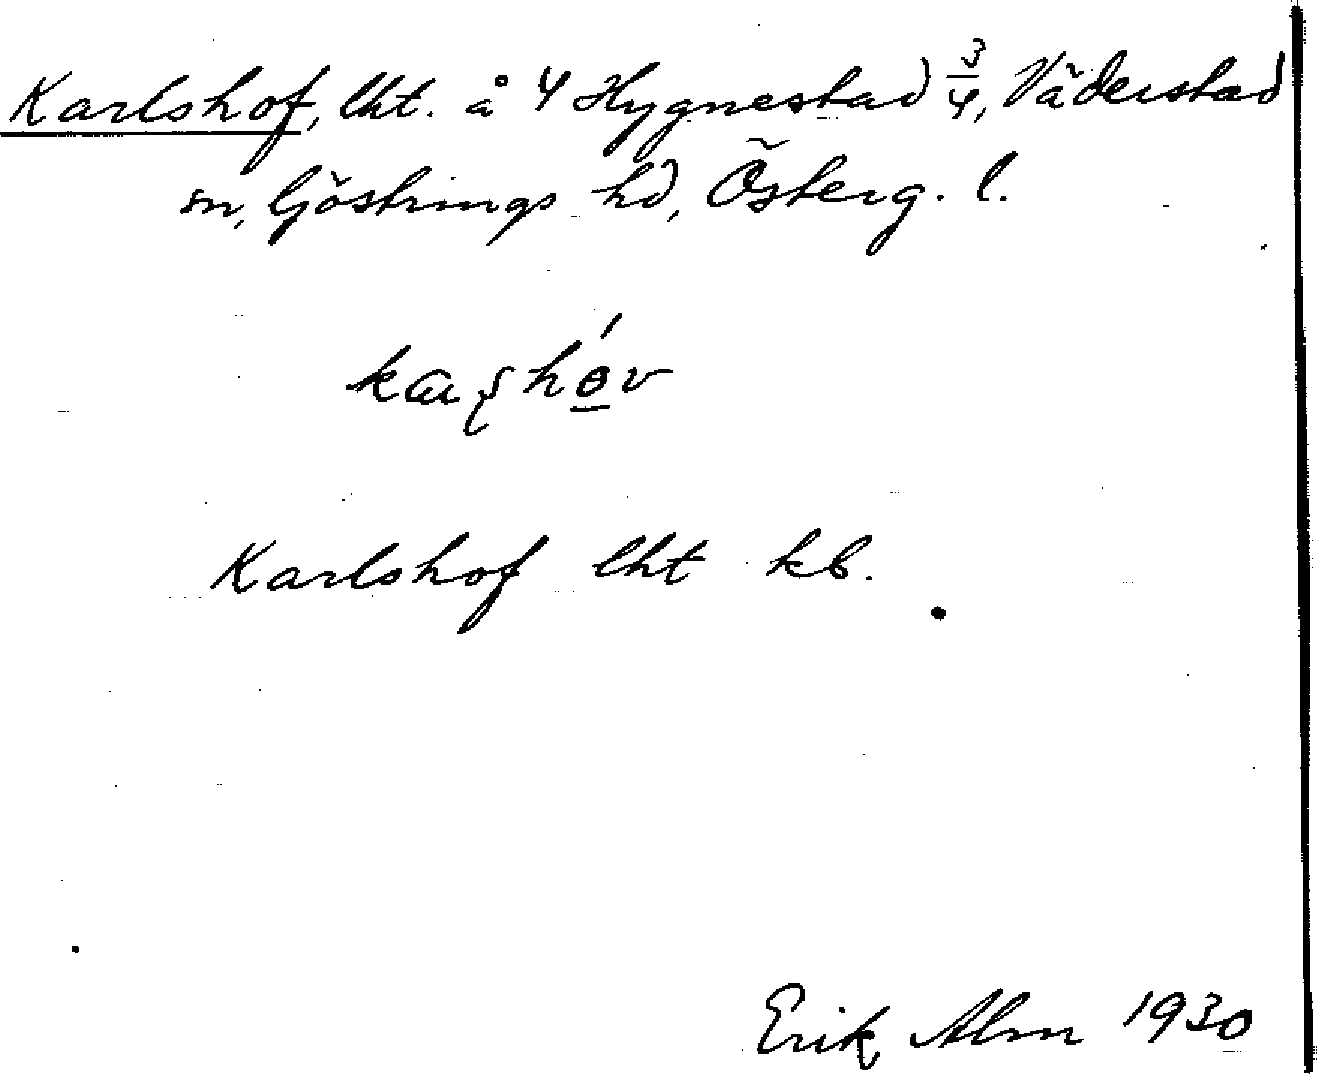 Karlshof, lht. å 4 Hygnestad 3/4, Väderstad
sn, Göstrings hd, Österg. l.
kaʂhóv
Karlshof lht kb.
Erik Alm 1930